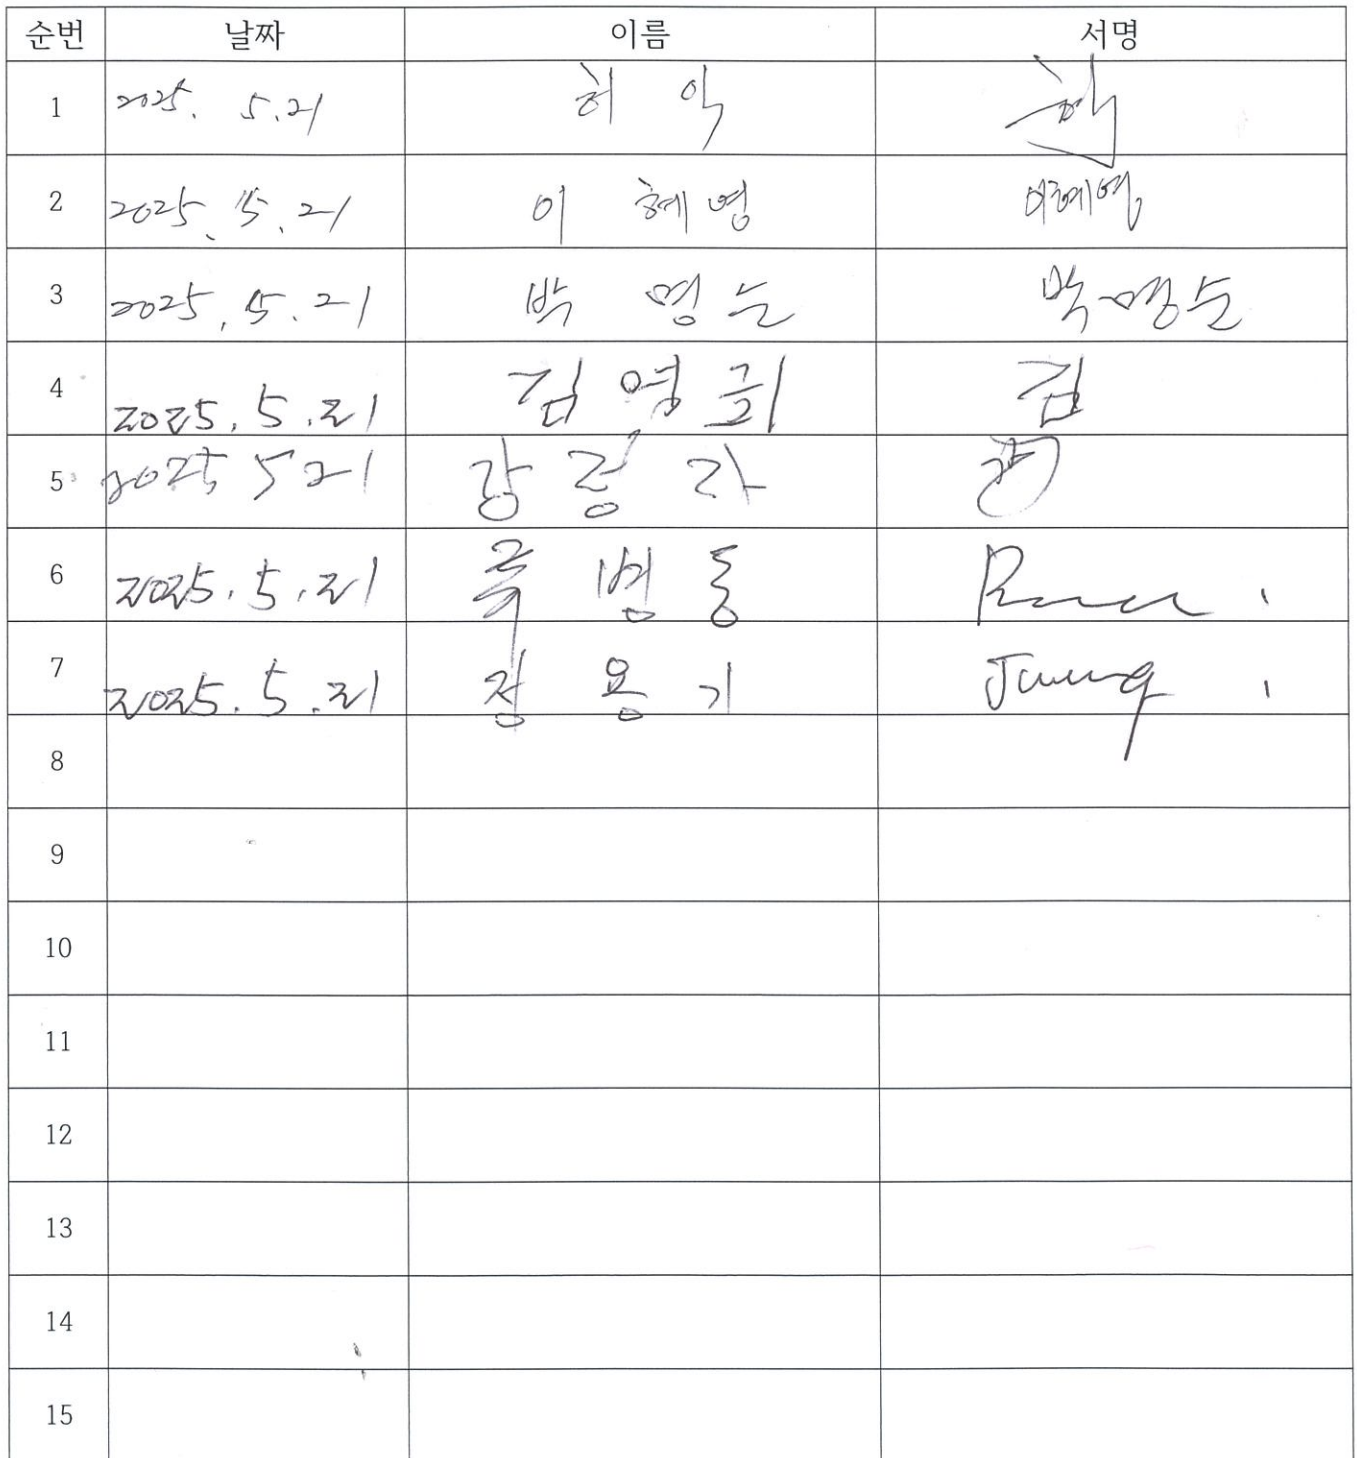 순번 날짜 이름 서명
1 2025. 5.21 허 익
2 2025. 5. 21 이 혜 영 이혜영
3 2025. 5. 21 박 영 순 박영순
4 2025. 5. 21 김 영 희 김
5 2025 5 21 강 정 자 강
6 2025. 5. 21 병 동
7 2025. 5. 21 정 용 기 Jung
8
9
10
11
12
13
14
15